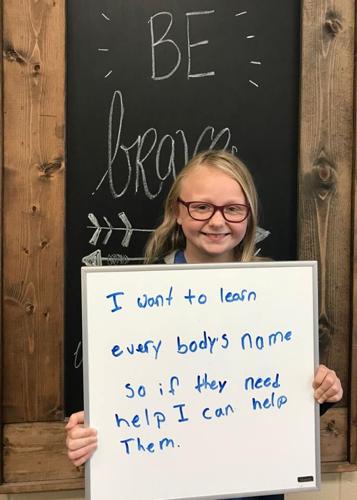 BE
brave
I want to learn
every body's name
so if they need
help I can help
Them.